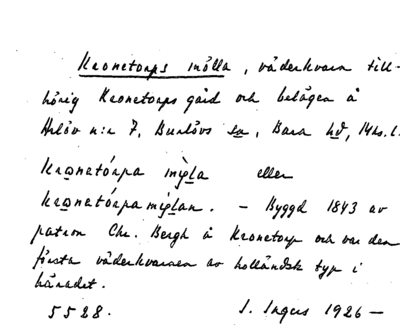 Kronetorps mölla, väderkvarn till-
hörig Kronetorps gård och belägen å
Arlöv n:r 7, Burlövs sn, Bara hd, Mhs. l.
Kronetórpa mýla eller
Kronetórpamýlan. – Byggd 1843 av
patron Chr. Bergh å Kronetorp och var den
första väderkvarnen av holländsk typ i
häradet.
5528. I. Ingers 1926 –